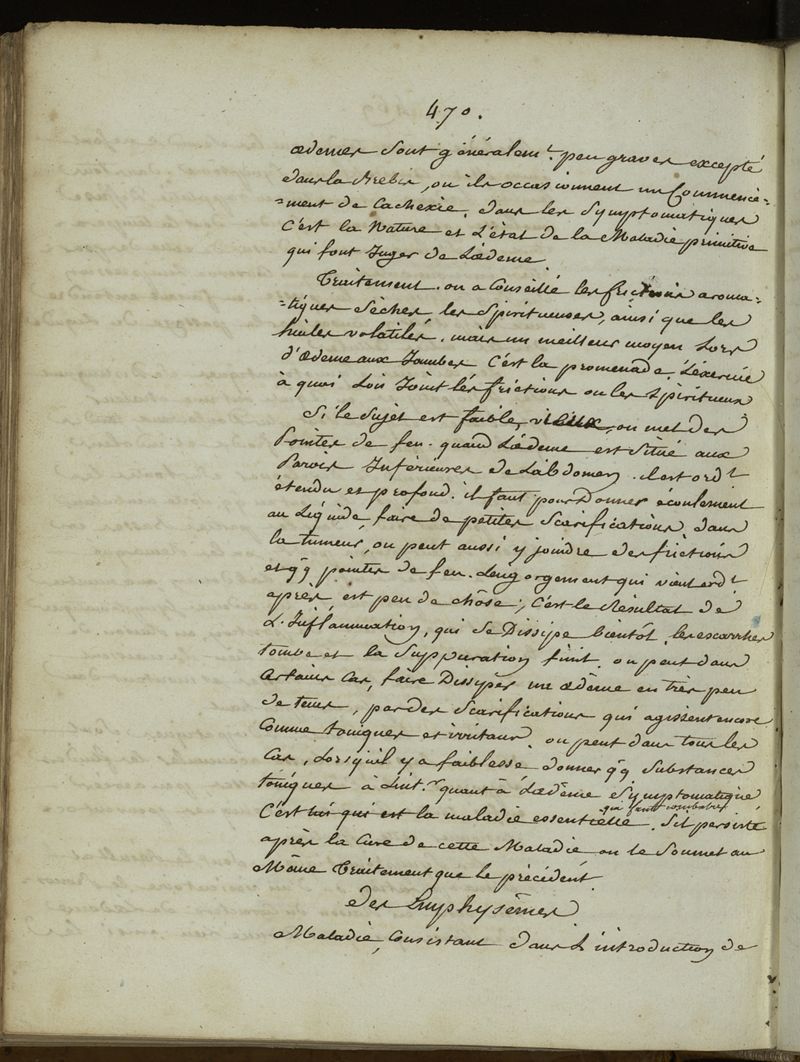 470.
œdemes sont généralem.t peu graves excepté
dans la Brebis, ou ils occasionnent un Commence-
=ment de Cachexie. dans les Symptomatiques
C'est la Nature et L'état de la Maladie primitive
qui font Juger de L'œdeme
Traitement. on a Conseillé les frictions aroma-
=tiques séches les Spiritueuses, ainsi que les
huiles volatiles. mais un meilleur moyen Lors
d'œdeme aux Jambes C'est la promenade, L'éxercice
à quoi Lon Joint les frictions ou les Spiritueux
Si le Sujet est faible, vieux, on met des
Pointes de feu. quand L'œdeme est Situé aux
Parois Inférieures de L'abdomen. il est ord.t
étendu et profond. il faut pour Donner écoulement
au Liquide, faire de petites Scarifications dans
la tumeur, on peut aussi y joindre des frictions
et qq pointes de feu. L'engorgement qui vient ord.t
après est peu de chôse; C'est le Résultat de
L'Inflammation, qui se Dissipe bientôt. les escarrhes
tombe et la Suppuration finit. on peut dans
Certains Cas, faire Dissiper un œdême en très peu
de tems, par des Scarifications qui agissent encore
Comme toniques et irritans. on peut dans tous les
Cas, Lorsqu'il y a faiblesse donner qq Substances
toniques à L'int.r quant à L'œdême Symptomatique
qui faut combatre
C'est qui est la maladie essentielle. S'il persiste
après la Cure de cette Maladie on le Soumet au
Même Traitement que le précédent.
Des Emphysêmes
Maladie, Consistant dans L'introduction de